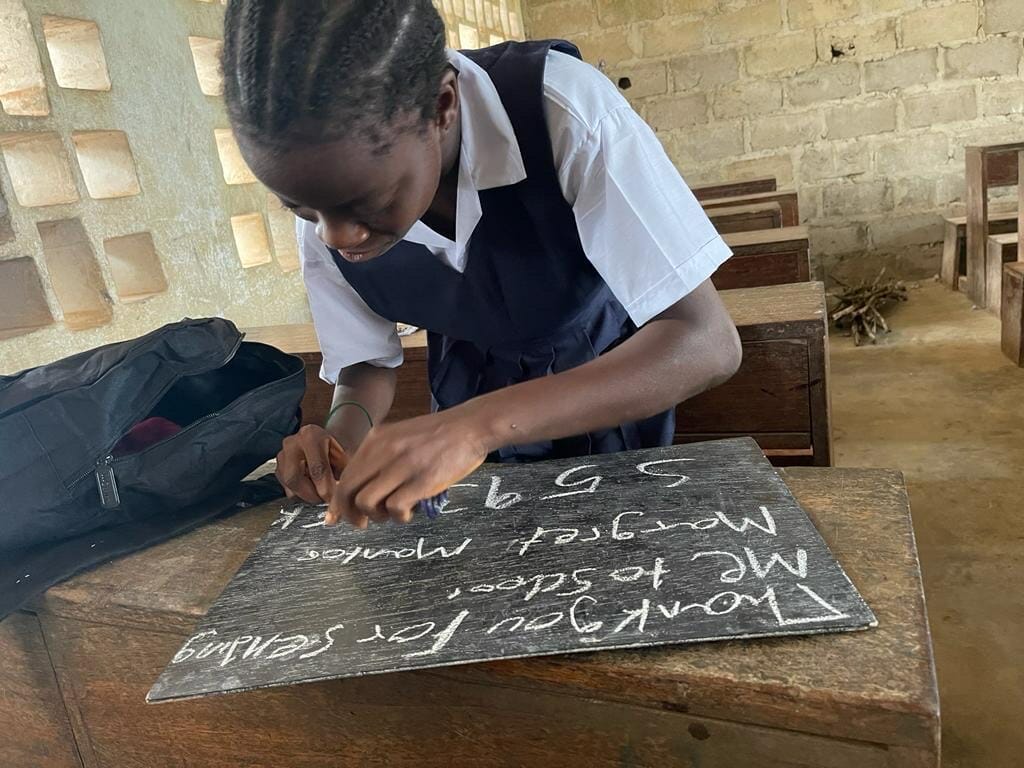 Thank you for sending
Me to School
Margret Mantor